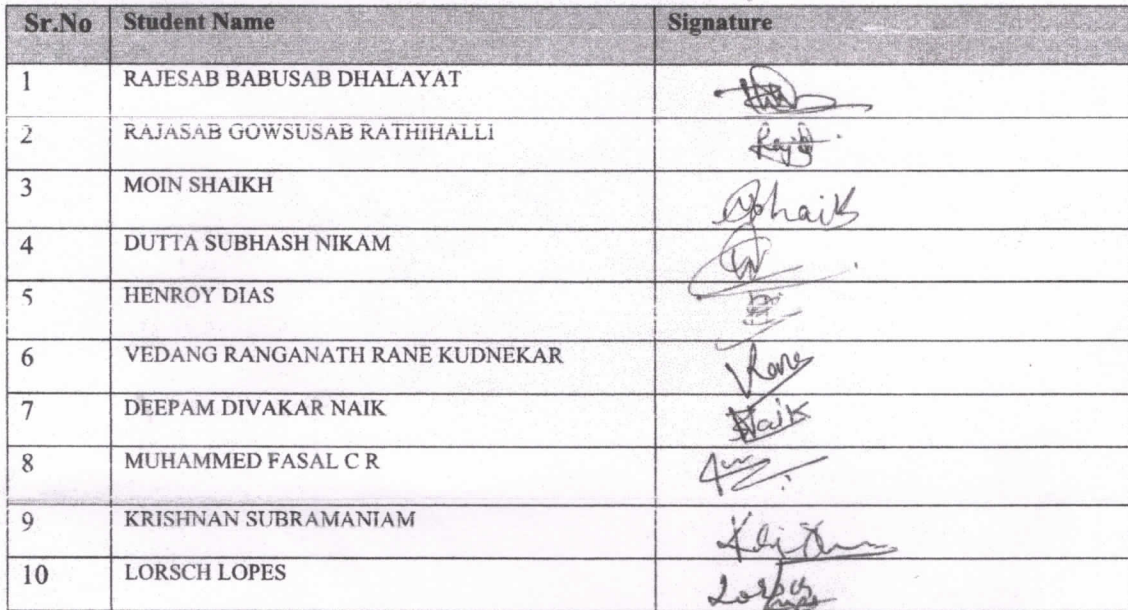 Sr.No Student Name Signature
1 RAJESAB BABUSAB DHALAYAT
2 RAJASAB GOWSUSAB RATHIHALLI
3 MOIN SHAIKH
4 DUTTA SUBHASH NIKAM
5 HENROY DIAS
6 VEDANG RANGANATH RANE KUDNEKAR Rane
7 DEEPAM DIVAKAR NAIK Naik
8 MUHAMMED FASAL C R
9 KRISHNAN SUBRAMANIAM
10 LORSCH LOPES